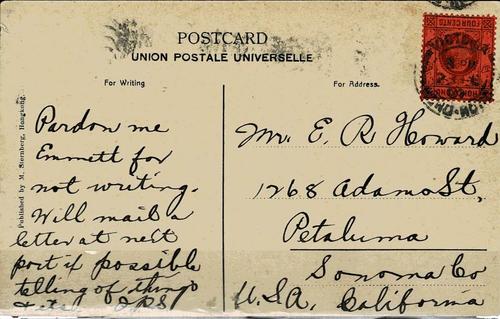 POSTCARD
UNION POSTALE UNIVERSELLE
For Writing
For Address.
FOUR CENTS
HONGKONG
Published by M. Sternberg, Hongkong.
Pardon me
Emmett for
not writing.
Will mail a
letter at next
port if possible
telling of things
Mr. E. R. Howard
1268 Adams St,
Petaluma
Sonoma Co
U.S.A. California